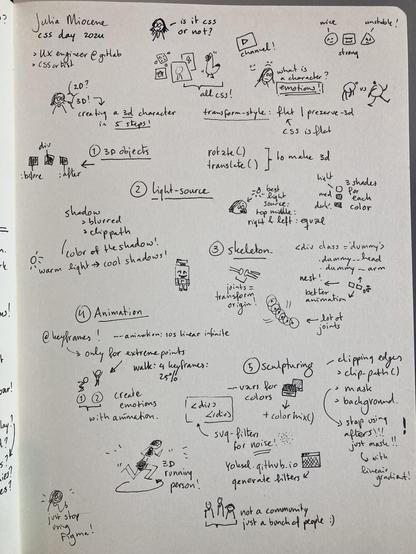 Julia Miocene
css day 2024
> UX engineer @ gitlab
> CSS artist
is it css
or not?
all css!
channel!
nice
strong
unstable!
what is
a character?
emotions!
vs
2D?
3D!
creating a 3d character
in 5 steps!
transform-style: flat | preserve-3d
css is flat
div
:before
:after
① 3D objects
rotate()
translate()
to make 3d
② light-source
best
light
source:
top middle:
right & left: equal
light
med
dark
3 shades
for
each
color
shadow
> blurred
> clip path
color of the shadow!
warm light → cool shadows!
③ skeleton
joints =
transform
origin!
<div class='dummy'>
.dummy--head
.dummy--arm
nest!
better
animation
lot of
joints
④ Animation
@keyframes!
--animation: 10s linear infinite
only for extreme points
walk: 4 keyframes:
25%
① ②
create
emotions
with animation.
⑤ sculpturing
clipping edges
> clip-path()
> mask
> background.
--vars for
colors
+ color mix()
<div>
</div>
svg-filters
for noise!
stop using
afters!!!
just mask!!
with
linear
gradient!
yoksel.github.io
generate filters
3D
running
person!
just stop
using
Figma!
not a community
just a bunch of people :)